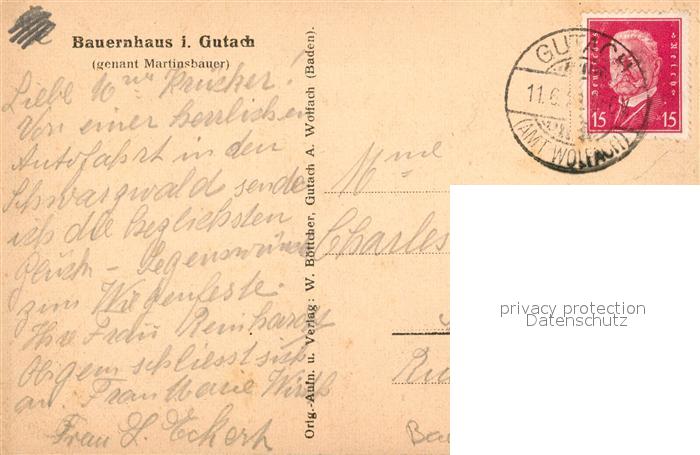 Bauernhaus i. Gutach
(genant Martinsbauer)
Liebe Krücker!
Von einer herrlichen
Autofahrt in den
Schwarzwald sende
ich die herzlichsten
Glück- Segenswünsche
zum Wiegenfeste.
Ihre Frau Reinhardt
Obigem schliesst sich
an. Frau Marie
Frau Eckert
Orig.-Aufn. u. Verlag: W. Böttcher, Gutach A. Wolfach (Baden).
Mme
Charles
GUTACH
11.6.
(AMT WOLFACH)
Deutsches Reich
15 15
privacy protection
Datenschutz